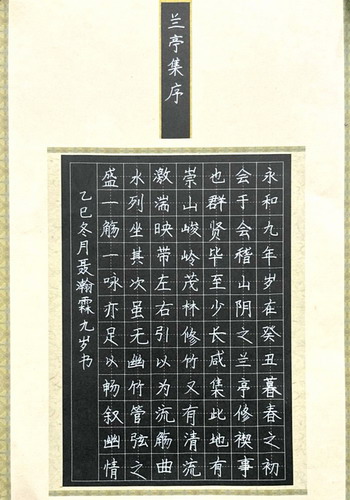 兰亭集序
永和九年岁在癸丑暮春之初
会于会稽山阴之兰亭修禊事
也群贤毕至少长咸集此地有
崇山峻岭茂林修竹又有清流
激湍映带左右引以为流觞曲
水列坐其次虽无幽竹管弦之
盛一觞一咏亦足以畅叙幽情
乙巳冬月聂瀚霖九岁书